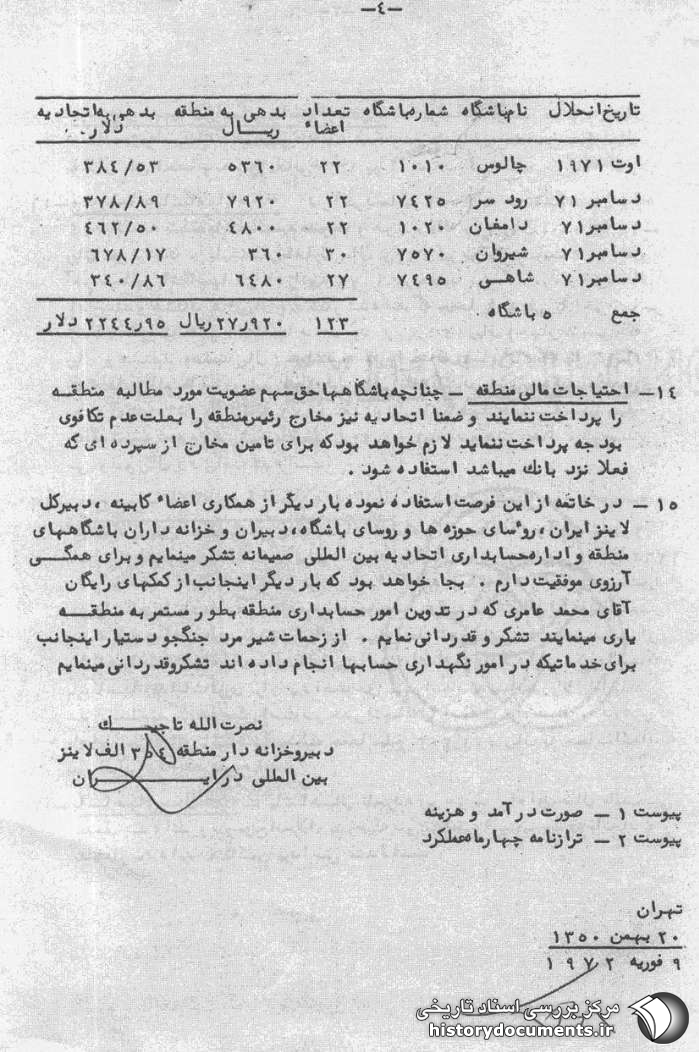 —٤—
تاریخ انحلال نام باشگاه شماره باشگاه تعداد اعضاء بدهی به منطقه ریـــال بدهی به اتحادیه دلار.
اوت ١٩٧١ چالوس ١٠١٠ ٢٢ ٥٣٦٠ ٣٨٤/٥٣
دسامبر ٧١ رود سر ٧٤٢٥ ٢٢ ٧٩٢٠ ٣٧٨/٨٩
دسامبر ٧١ دامغان ١٠٢٠ ٢٢ ٤٨٠٠ ٤٦٢/٥٠
دسامبر ٧١ شیروان ٧٥٧٠ ٣٠ ٣٦٠ ٦٧٨/١٧
دسامبر ٧١ شاهی ٧٤٩٥ ٢٧ ٦٤٨٠ ٣٤٠/٨٦
جمع ٥ باشگاه ١٢٣ ٢٧ر٩٢٠ ریال ٢٢٤٤ر٩٥ دلار
١٤— احتیاجات مالی منطقه — چنانچه باشگاهها حق سهم عضویت مورد مطالبه منطقه
را پرداخت ننمایند و ضمنا اتحادیه نیز مخارج رئیس منطقه را بعلت عدم تکافوی
بودجه پرداخت ننماید لازم خواهد بود که برای تامین مخارج از سپرده ای که
فعلا نزد بانك میباشد استفاده شود .
١٥ — در خاتمه از این فرصت استفاده نموده بار دیگر از همکاری اعضاء کابینه ، دبیرکل
لاینز ایران ، روٴسای حوزه ها و روسای باشگاه ، دبیران و خزانه داران باشگاههای
منطقه و اداره حسابداری اتحادیه بین المللی صمیمانه تشکر مینمایم و برای همگـــی
آرزوی موفقیت دارم . بجا خواهد بود که بار دیگر اینجانب از کمکهای رایگان
آقای محمد عامری که در تدوین امور حسابداری منطقه بطور مستمر به منطقـــه
یاری مینمایند تشکر و قدردانی نمایم . از زحمات شیر مرد جنگجو دستیار اینجانب
برای خدماتیکه در امور نگهداری حسابها انجام داده اند تشکر و قدردانی مینمایم
نصرت الله تاجبیـــك
دبیر و خزانه دار منطقه ٣٥٤ الف لاینز
بین المللی در ایـــــــران
پیوست ١ — صورت درآمد و هزینه
پیوست ٢ — ترازنامه چهار ماهه عملکرد
تهران
٢٠ بهمن ١٣٥٠
٩ فوریه ١٩٧٢
مرکز بررسی اسناد تاریخی
historydocuments.ir